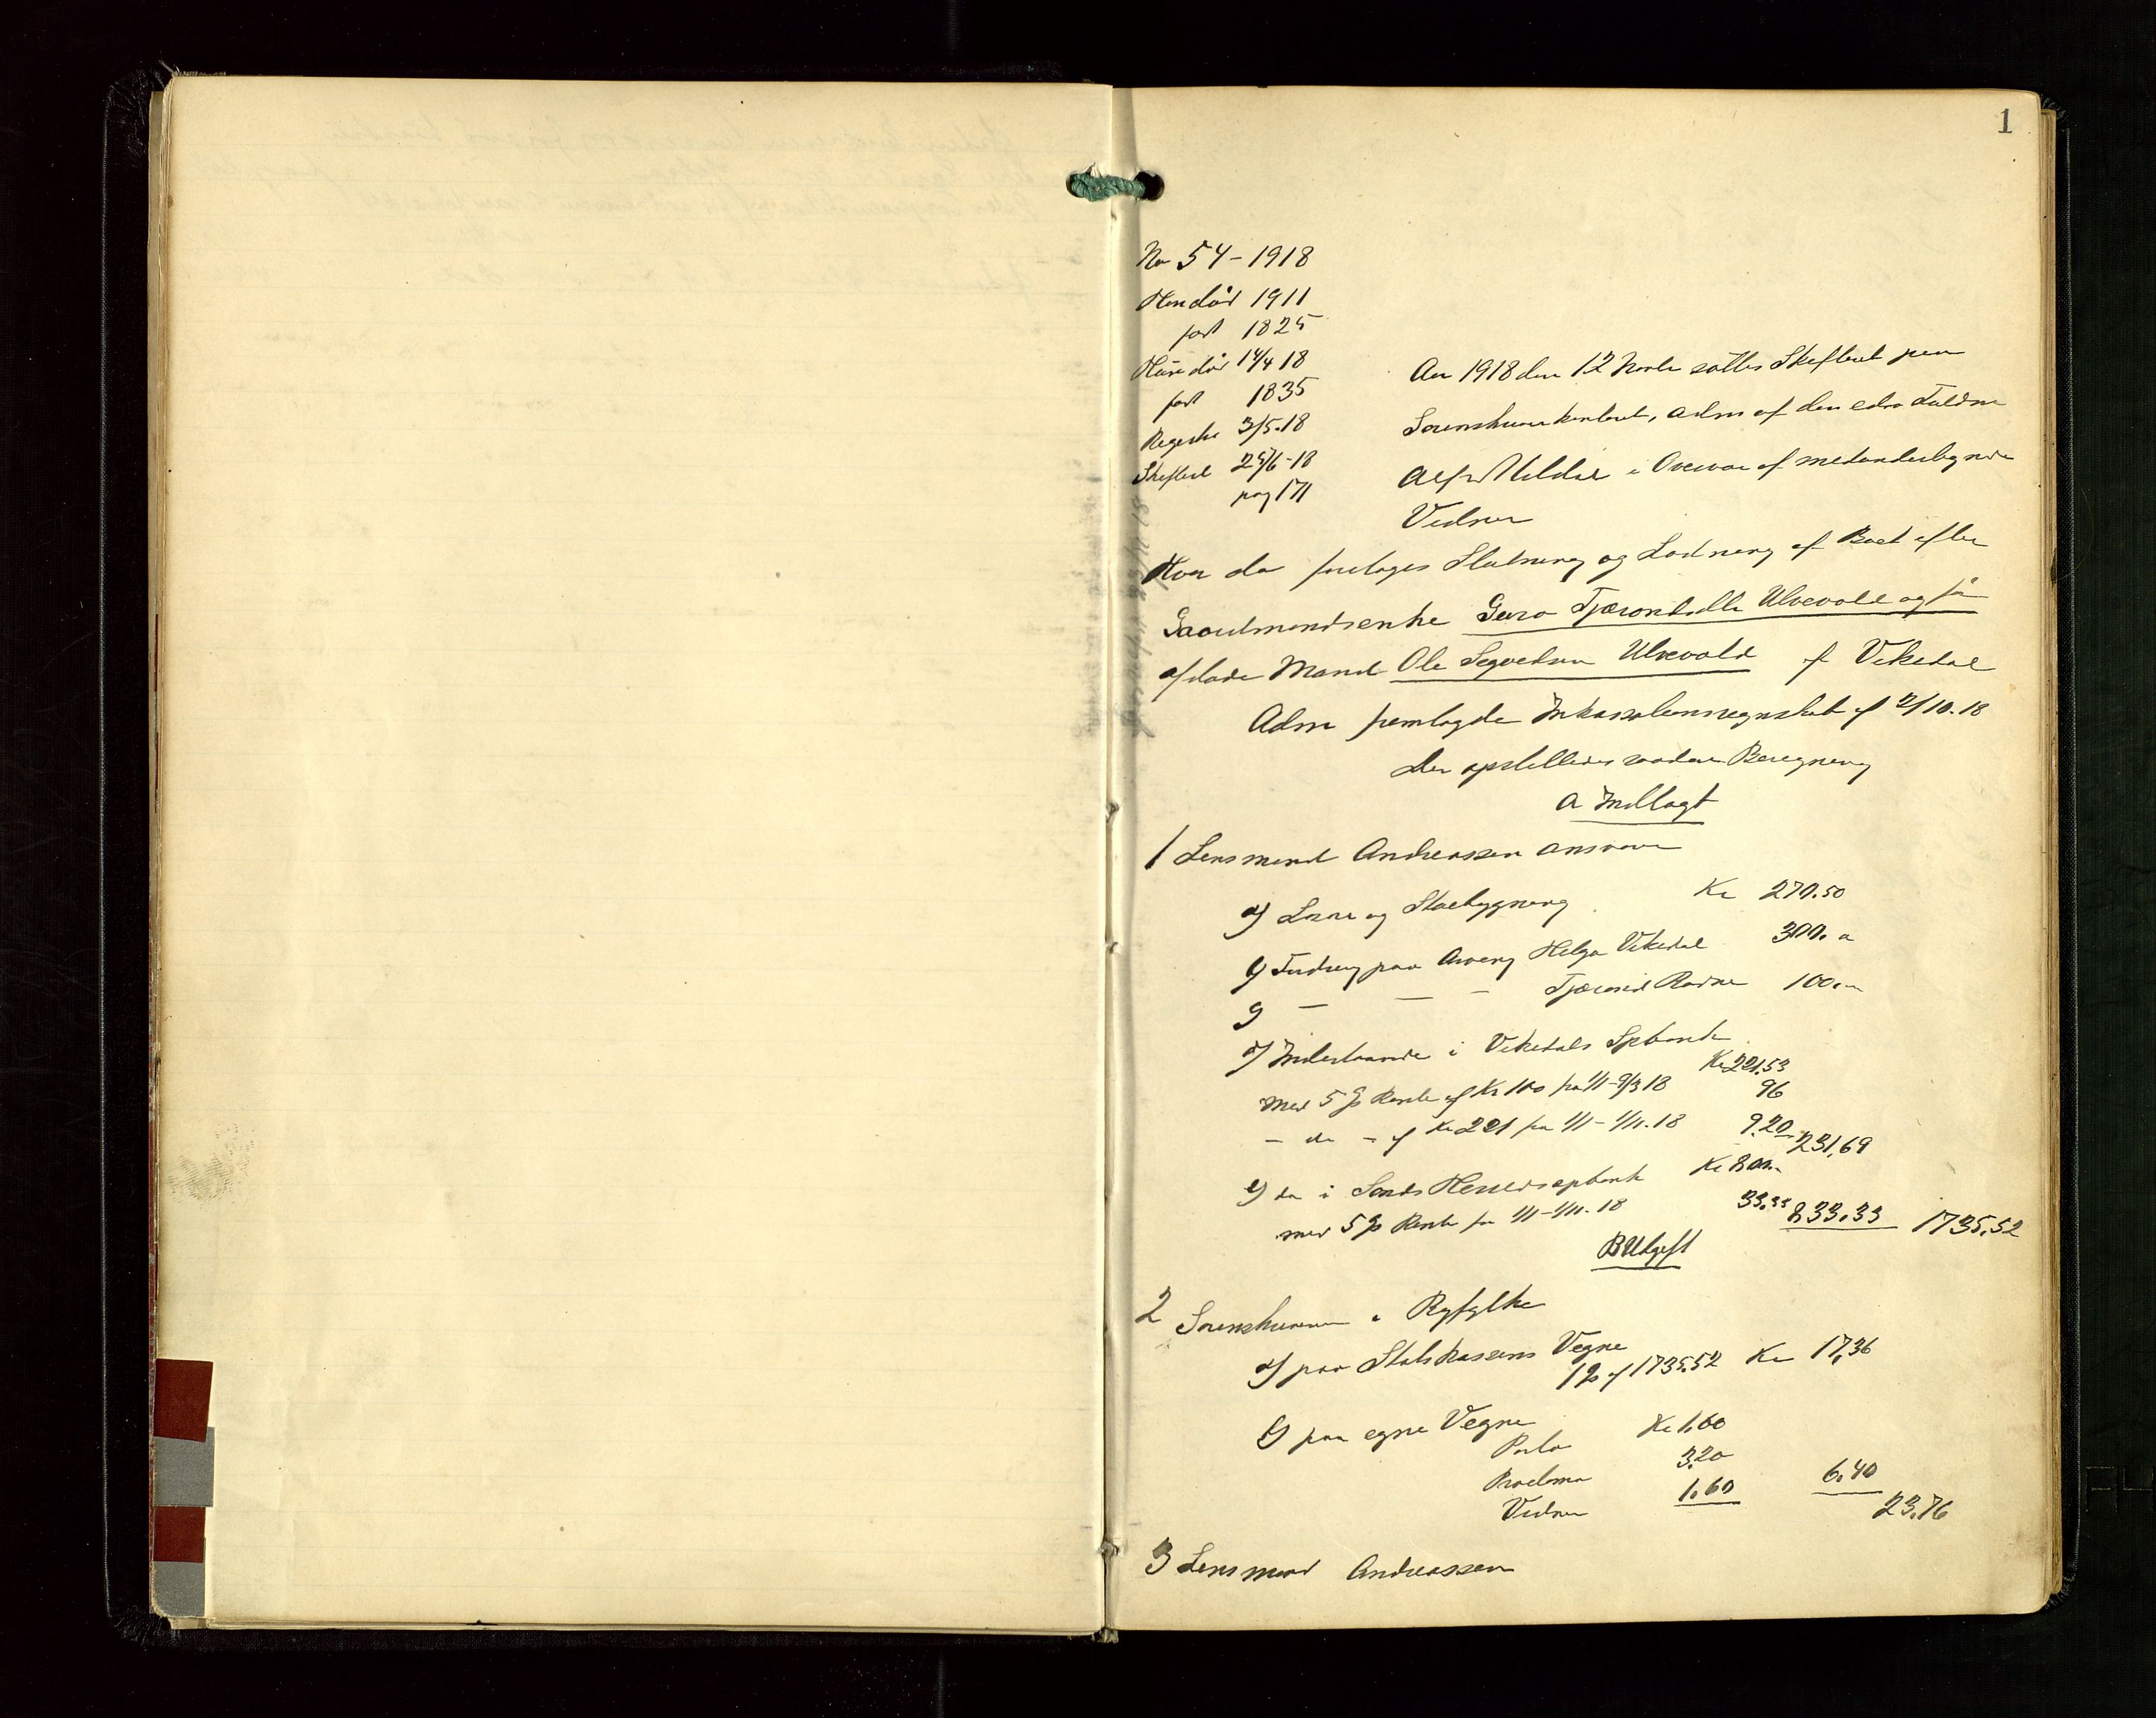 1
No 54 - 1918
Hun död 1911
født 1825
Han död 14/4 18
født 1835
Registr 3/5.18
Skifteret 25/6-18
pag 171
Aar 1918 den 12 Novbr sattes Skifteret paa
Sorenskriverkontoret, adm af den edsv Fuldm
Alfr Meldal i Overvær af medundertegnede
Vidner
Hvor da foretoges Slutning og Lodning af Boet efter
Gaardmandsenke Guro Tjerandsdtr Ulvevold og før
afdøde Mand Ole Segvedsen Ulvevold af Vikedal
Adm fremlagde Inkassationsregnskab af 2/10.18
Der opstilledes saadan Beregning
A Indtægt
1 Lensmand Andreassen ansvarer
a) Løsøre og Stuebygning Kr 270.50
b) Fordring paa Arving Helga Vikedal 300. "
c) — — — Tjerand Rødne 100. —
d) Indestaaende i Vikedals Spbank Kr 221.53
med 5 % Rente af Kr 100 fra 1/1-9/3 18 96
- do - af Kr 221 fra 1/1 - 1/11.18 9.20 231,69
e) do i Sands Herredsspbank Kr 800.-
med 5 % Rente fra 1/1-1/11.18 33.33 833.33 1735.52
B Udgift
2 Sorenskriveren i Ryfylke
a) paa Statskassens Vegne
1 % af 1735.52 Kr 17,36
b) paa egne Vegne
Porto Kr 1.60
Proclama 3.20
Vidner 1.60 6.40
23.76
3 Lensmand Andreassen